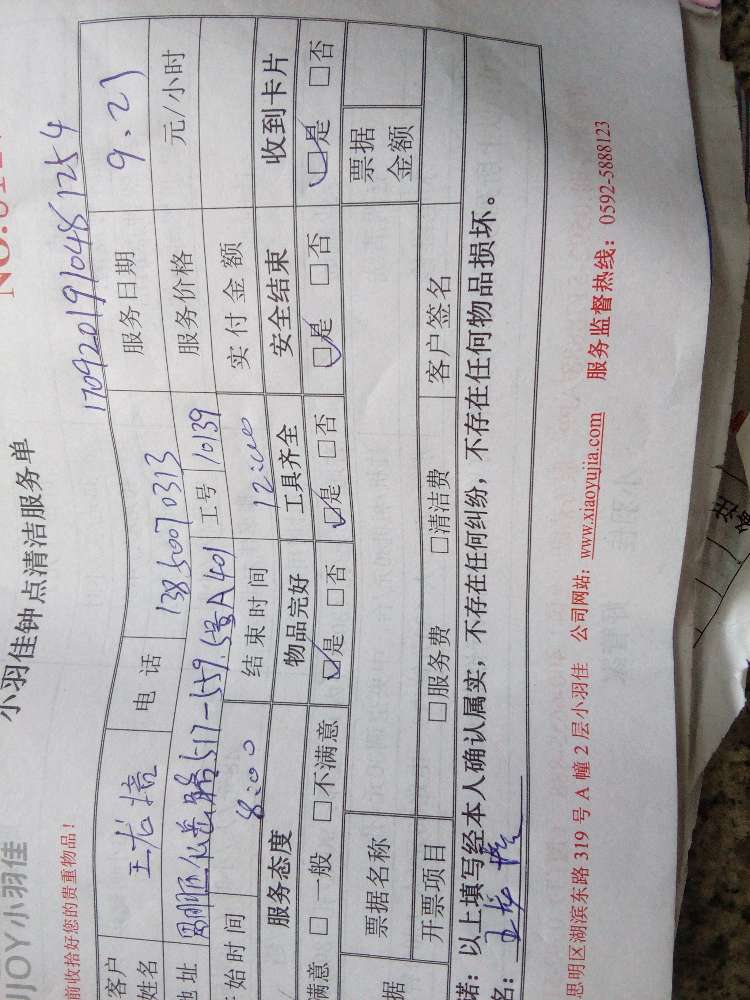 JOY小羽佳
小羽佳钟点清洁服务单
前收拾好您的贵重物品!
17092019104812S4
客户姓名 电话 13850070313 服务日期 9.21
地址 5号A401 工号 10139 服务价格 元/小时
始时间 8:00 结束时间 12:00 实付金额
服务态度 物品完好 工具齐全 安全结束 收到卡片
满意 □一般 □不满意 □是 □否 □是 □否 □是 □否 □是 □否
据 票据名称 票据金额
开票项目 □服务费 □清洁费 客户签名
诺:以上填写经本人确认属实,不存在任何纠纷,不存在任何物品损坏。
名:
思明区湖滨东路319号A幢2层小羽佳 公司网站:www.xiaoyujia.com 服务监督热线:0592-5888123